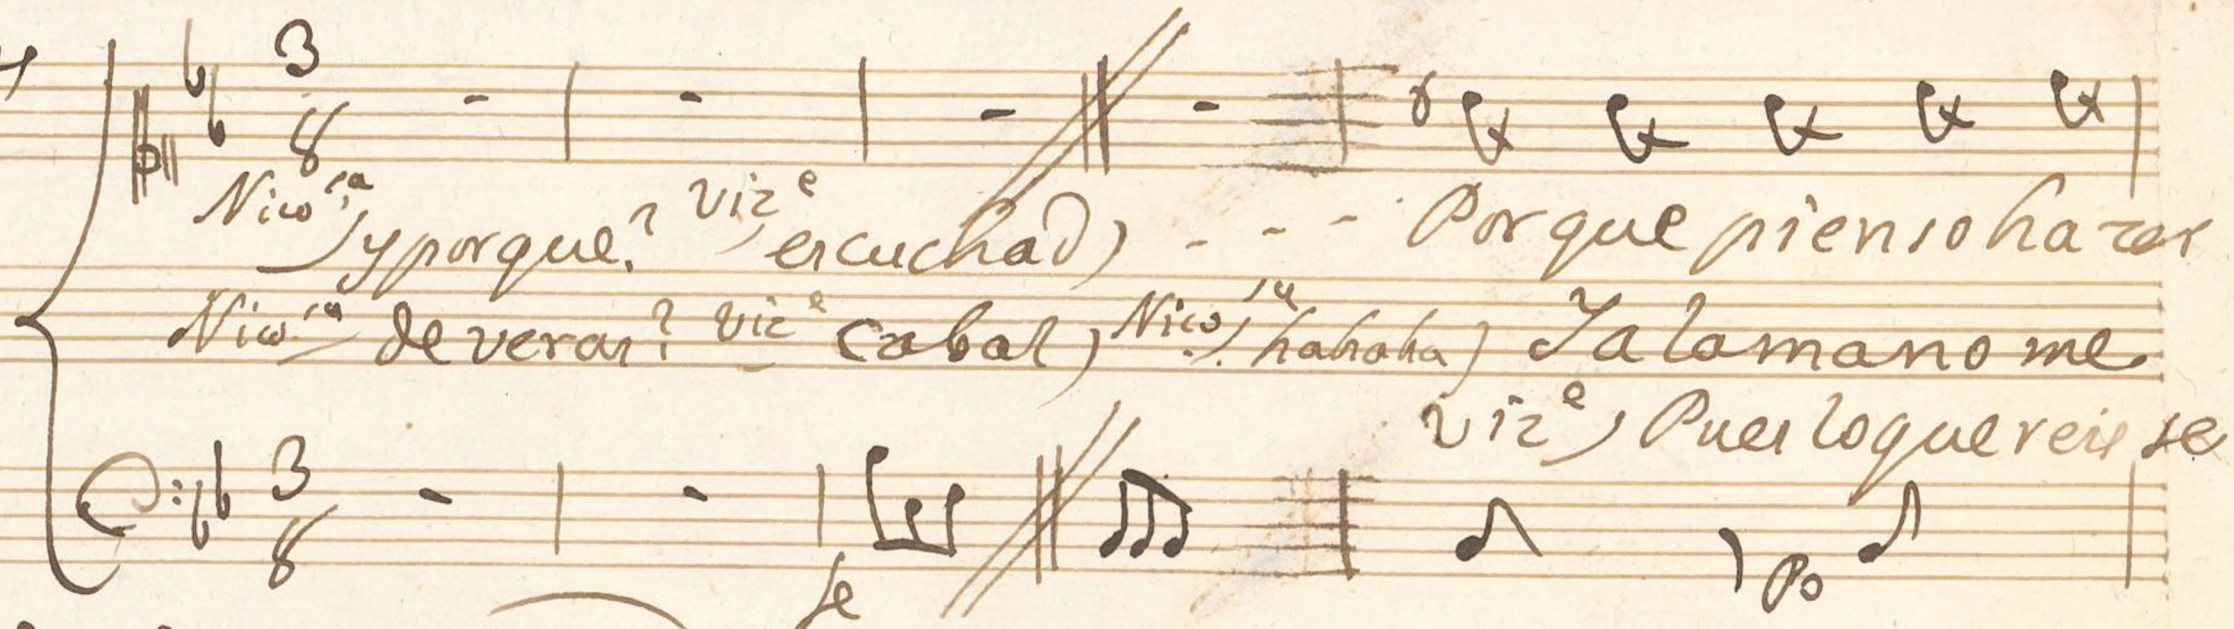 3
8
Nico.sa, y porque? Viz.e, escuchad, - - - Porque pienso hazer
Nico.sa de veras? Viz.e Cabal, Nico.sa, hahaha) Ya la mano me
Viz.e, Pues lo quereis se
3
8
fe Po